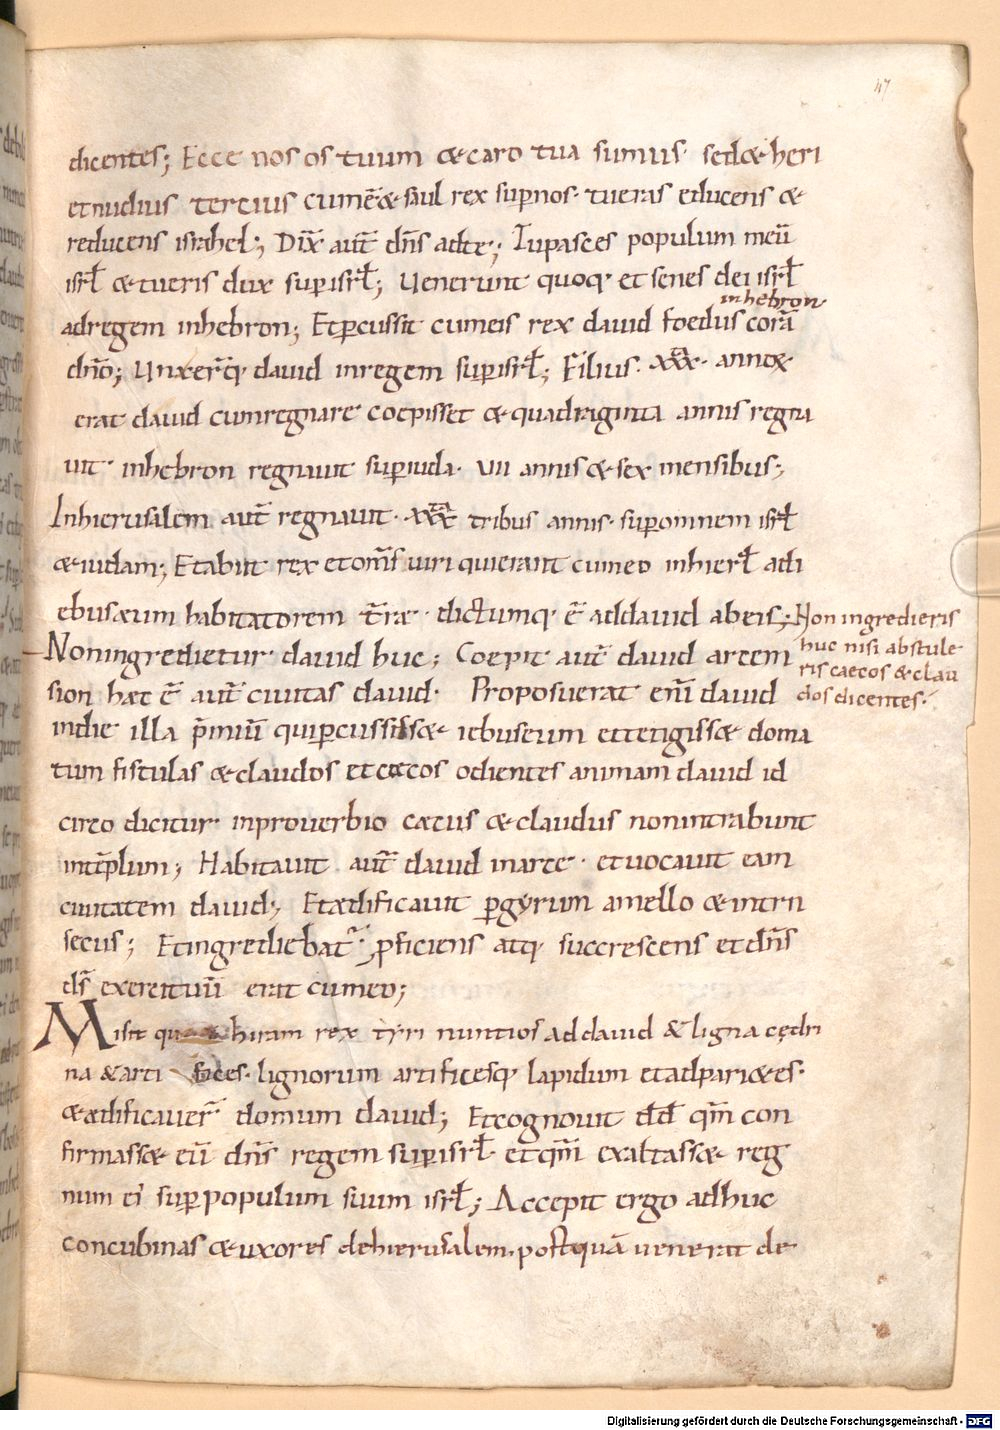 47
dicentes; Ecce nos os tuum & caro tua sumus· sed & heri
et nudius tercius cum e᷎& saul rex sup nos· tu eras educens &
reducens israhel; Dix̄ aut̄ dn̄s ad te; Tu pasces populum meū
isrl̄ & tu eris dux sup isrl̄; Uenerunt quoq; et senes de isrl̄
in hebron
ad regem in hebron; Et percussit cum eis rex dauid foedus corā
dn̄o; Unxer̄q; dauid in regem sup isrl̄; Filius· xxx· annoꝝ
erat dauid cum regnare coepisset & quadraginta annis regna
uit· in hebron regnauit sup iuda· VII annis & sex mensibus;
In hierusalem aut̄ regnauit· xxx tribus annis· sup omnem isrl̄
& iudam; Et abiit rex et om̄s uiri qui erant cum eo in hierl̄ ad i
ebusæum habitatorem t̄ræ· dictumq; ē ad dauid ab eis; Non ingredieris
huc nisi abstule
ris caecos & clau
dos dicentes·
Non ingredietur dauid huc; Coepit aut̄ dauid arcem
sion hæc ē aut̄ ciuitas dauid· Proposuerat eni̅ dauid
in die illa p̄miū qui percussiss& iebuseum et tetigiss& doma
tum fistulas & claudos et cæcos odientes animam dauid id
circo dicitur· in prouerbio cæcus & claudus non intrabunt
in tēplum; Habitauit aut̄ dauid in arce· et uocauit eam
ciuitatem dauid; Et ædificauit per gyrum a mello & intrin
secus; Et ingrediebat̄· proficiens atq; succrescens et dn̄s
ds̄ exercituū erat cum eo;
Misit hiram rex tyri nuntios ad dauid & ligna cędri
na & arti fices· lignorum artificesq; lapidum et ad pari&es·
& ædificauer̄ domum dauid; Et cognouit dd̄ qm̄ con
firmass& eū dn̄s regem sup isrl̄· et qm̄ exaltass& reg
num ei' sup populum suum isrl̄; Accepit ergo adhuc
concubinas & uxores de hierusalem· postquā uenerat de
Digitalisierung gefördert durch die Deutsche Forschungsgemeinschaft - DFG